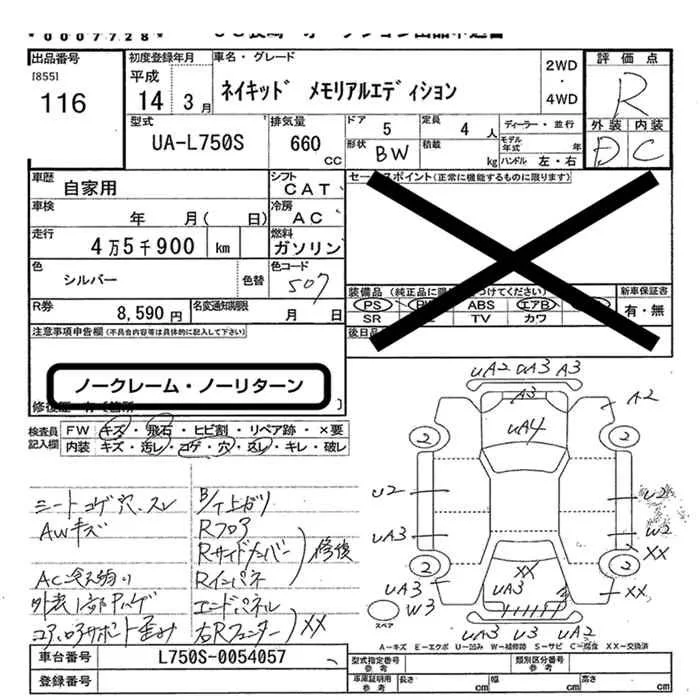 *0007728*
出品番号
[855]
116
初度登録年月
平成
14 3月
車名・グレード
ネイキッド メモリアルエディション
2WD
・
4WD
評価点
R
外装 内装
D C
型式
UA-L750S
排気量
660
CC
ドア
5
定員
4 人
ディーラー・並行
形状
BW
積載
kg
モデル年式
年
ハンドル 左・右
車歴
自家用
シフト
CAT
セールスポイント(正常に機能するものに限ります)
車検
年 月( 日)
冷房
AC
走行
4万5千900 km
燃料
ガソリン
色
シルバー
色替
色コード
507
装備品
PS ABS エアB
SR TV カワ
新車保証書
有・無
R券
8,590円
名変通知期限
月 日
注意事項申告欄(不具合内容等は具体的に記入して下さい)
ノークレーム・ノーリターン
検査員記入欄
FW キズ・飛石・ヒビ割・リペア跡・×要
内装 キズ・汚レ・コゲ・穴・スレ・キレ・破レ
シートコゲ穴.スレ
AWキズ
B/下上がり
Rフロア
Rサイドメンバー
Rインパネ
修復
エンドパネル
右Rフェンダー
XX
UA2 UA3 A3
A3
A2
UA4
2 2
U2 U2
UA3 W2
XX
2 2
XX
UA3 UA3 XX
W3
スペア
UA3 U3 UA2
A-キズ E-エクボ U-凹み W-補修跡 S-サビ C-腐食 XX-交換済
車台番号
L750S-0054057
登録番号
型式指定番号
参考
類別区分番号
参考
車庫証明用
参考
長さ cm 幅 cm 高さ cm